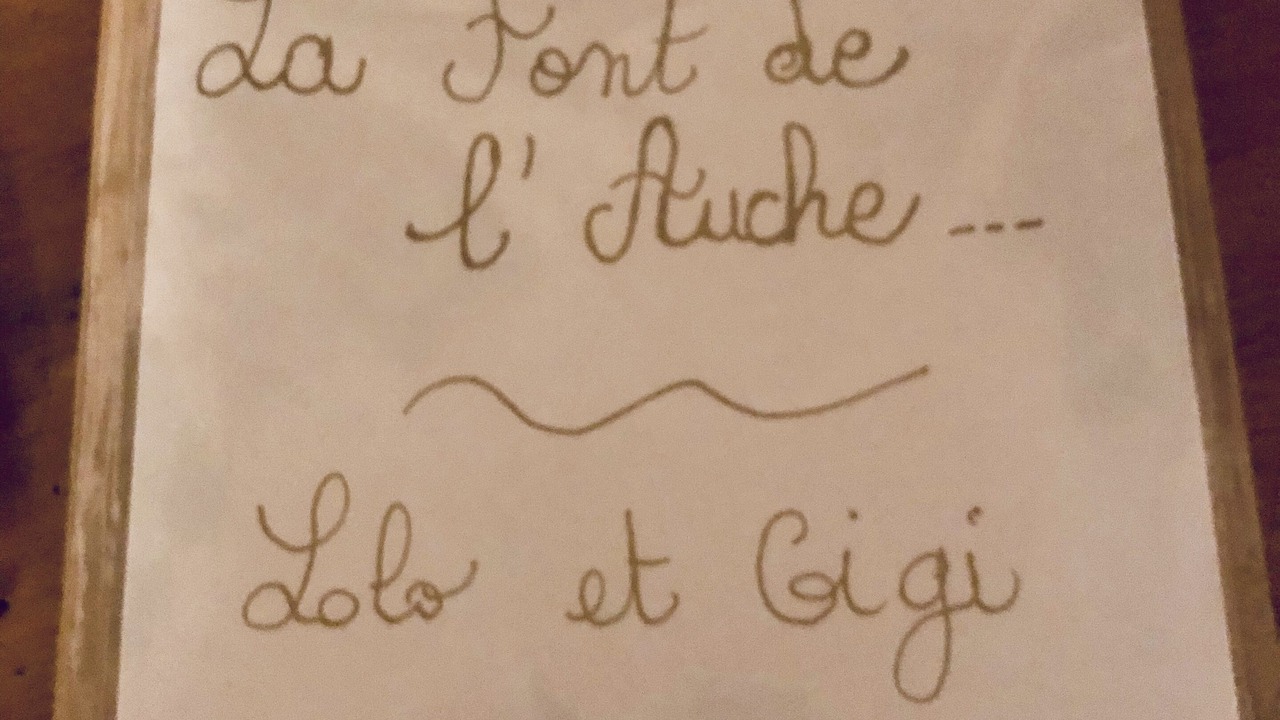 La Font de
l' Auche ---
Lolo et Gigi